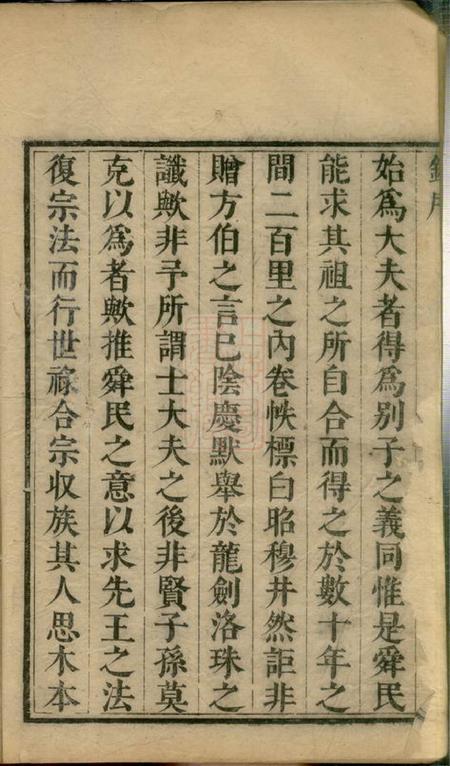 始爲大夫者得爲别子之義同惟是舜民
能求其祖之所自合而得之於數十年之
間二百里之內卷帙標白昭穆井然詎非
贈方伯之言已陰慶默舉於龍劍洛珠之
讖歟非予所謂士大夫之後非賢子孫莫
克以爲者歟推舜民之意以求先王之法
復宗法而行世祿合宗収族其人思木本